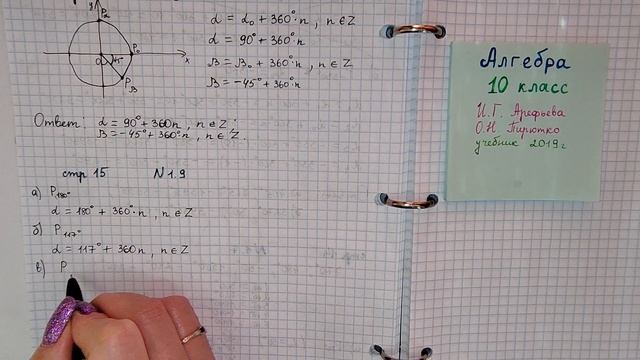 y
Pα
P₀
0
45°
x
P_B
α = α₀ + 360°·n, n∈Z
α = 90° + 360°n
β = β₀ + 360°·n, n∈Z
β = -45° + 360°n
Ответ: α = 90° + 360n, n∈Z
β = -45° + 360°n, n∈Z.
стр 15 N 1.9
а) P₁₈₀°
α = 180° + 360°·n, n∈Z
б) P₁₁₇°
α = 117° + 360n, n∈Z
в) P
Алгебра
10 класс
И.Г. Арефьева
О.Н Пирютко
учебник 2019г